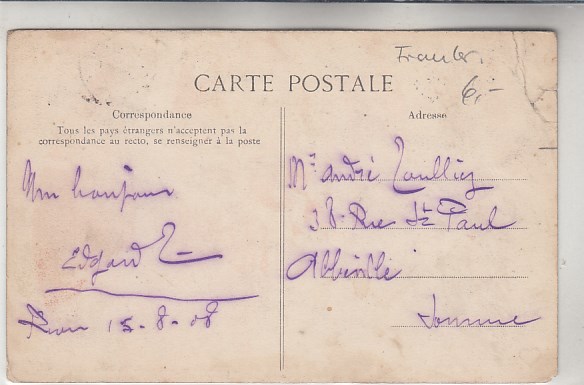 Frankr.
6,-
CARTE POSTALE
Correspondance
Tous les pays étrangers n'acceptent pas la
correspondance au recto, se renseigner à la poste
Adresse
Mon bonjour
Edgard
15-8-08
Mr André
38 Rue St Paul
Abbeville
Somme